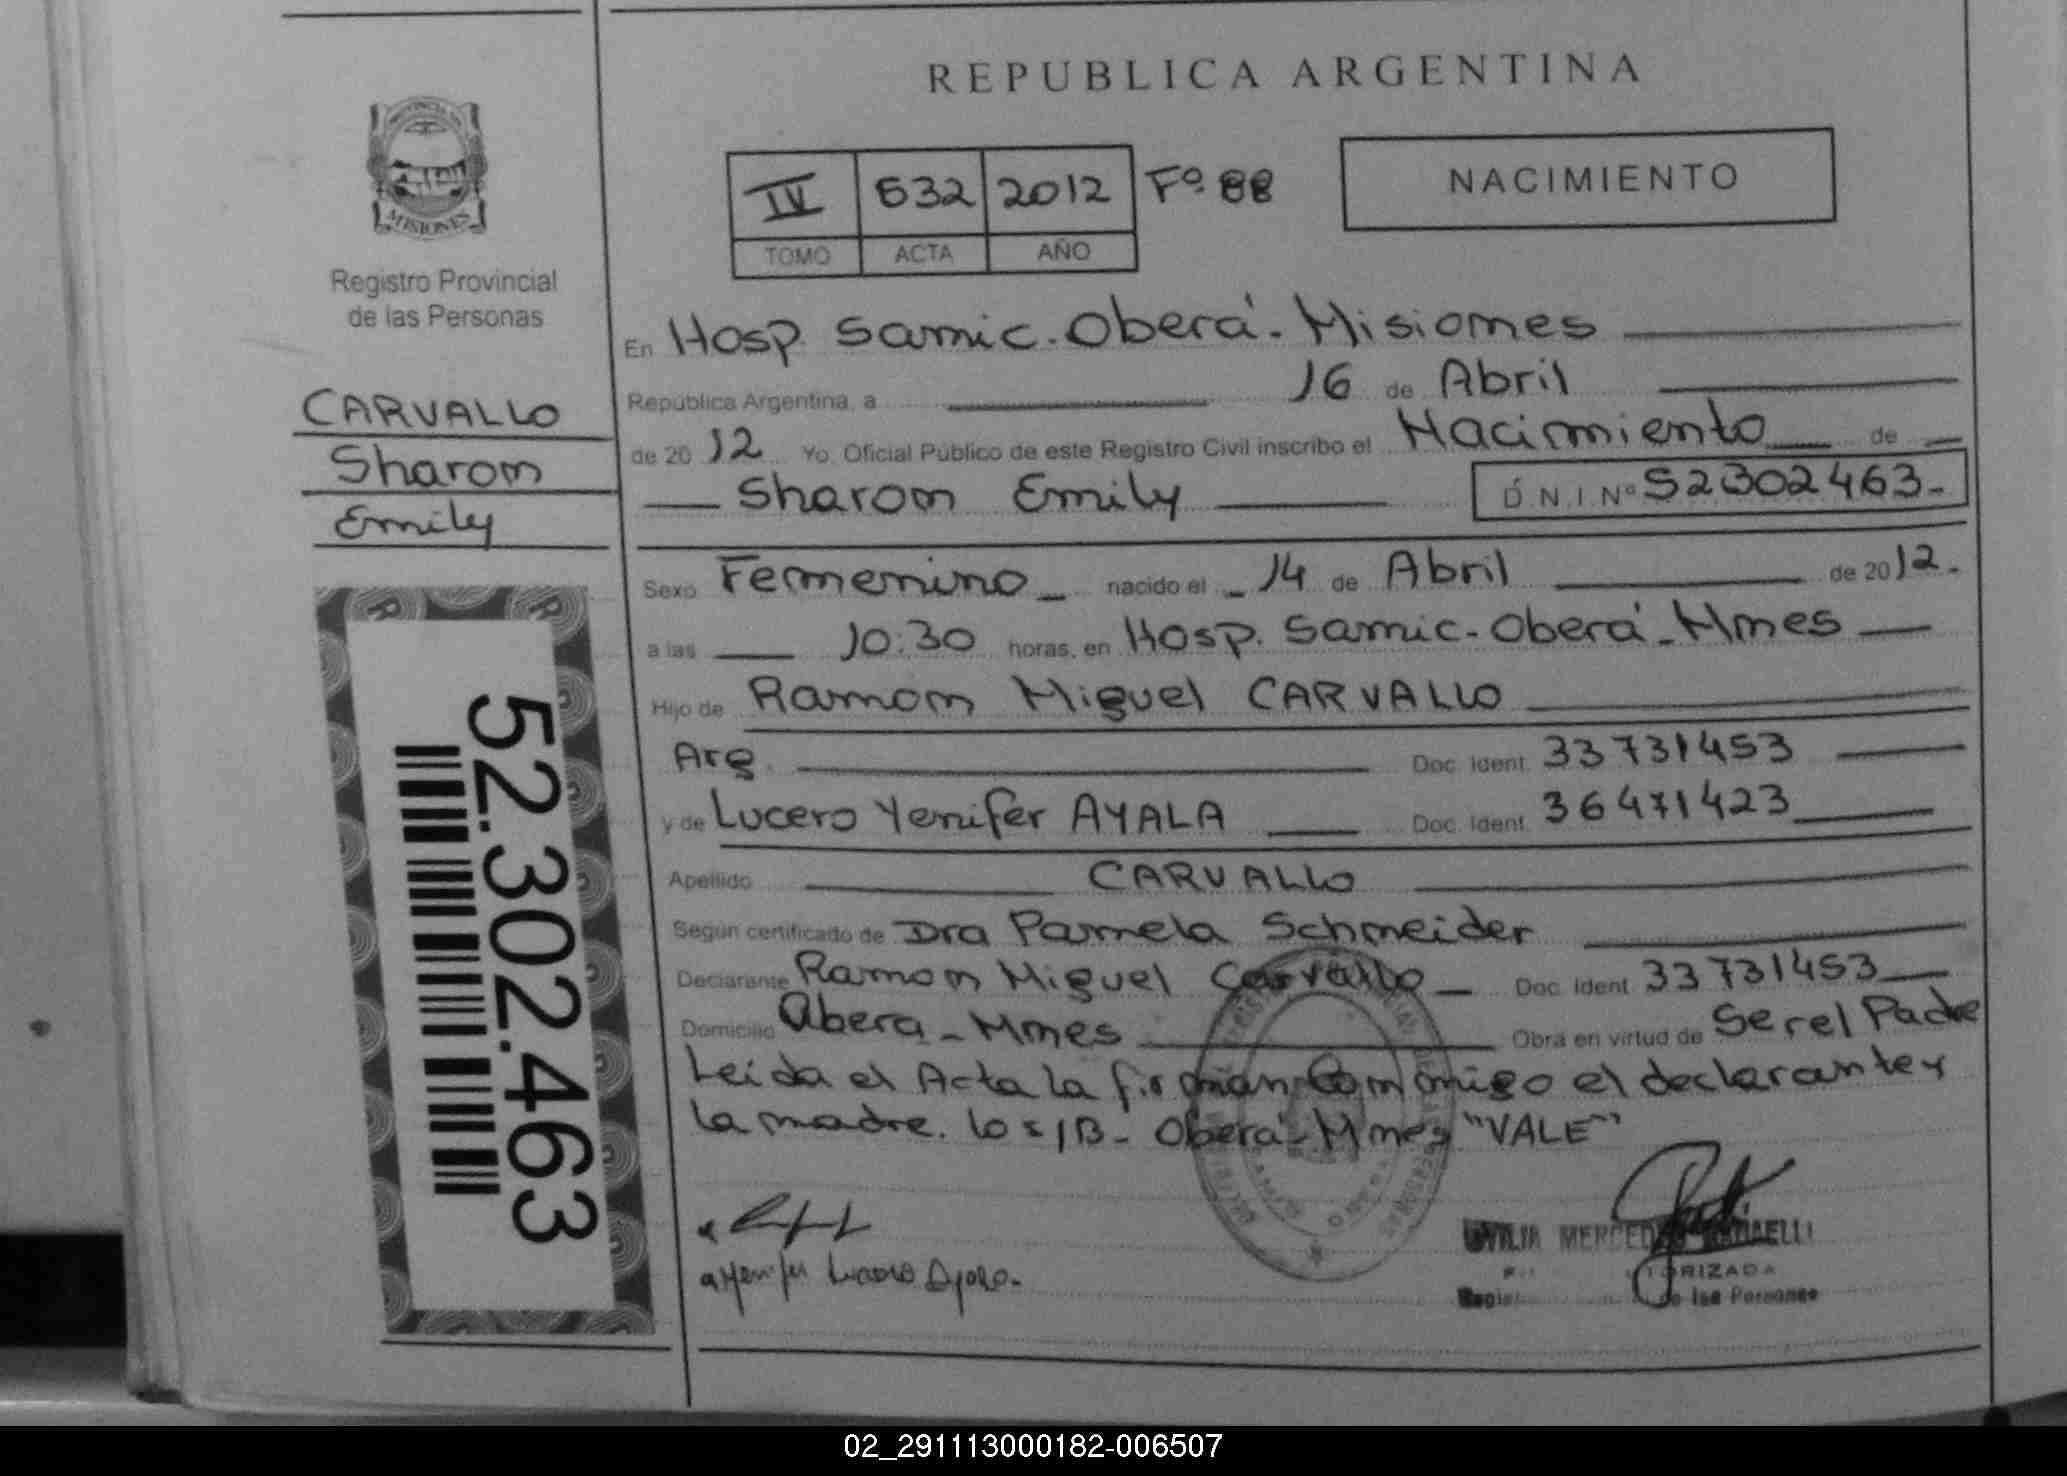 REPUBLICA ARGENTINA
PROVINCIA DE
MISIONES
Registro Provincial
de las Personas
CARVALLO
Sharon
Emily
52.302.463
IV 632 2012 Fº 88
TOMO ACTA AÑO
NACIMIENTO
En Hosp. Samic - Oberá - Misiones
República Argentina, a 16 de Abril
de 2012 Yo, Oficial Público de este Registro Civil inscribo el Nacimiento de
Sharon Emily D.N.I.Nº 52302463-
Sexo Femenino nacido el 14 de Abril de 2012.
a las 10:30 horas, en Hosp. Samic - Oberá - Mnes
Hijo de Ramon Miguel CARVALLO
Arg. Doc. Ident. 33731453
y de Lucero Yenifer AYALA Doc. Ident. 36471423
Apellido CARVALLO
Según certificado de Dra Pamela Schneider
Declarante Ramon Miguel Carvallo Doc. Ident. 33731453
Domicilio Obera - Mnes Obra en virtud de Ser el Padre
Leida el Acta la firman Conmigo el declarante y
la madre. lo s/B - Oberá - Mnes "VALE"
MERCEDES
de las Personas
02_291113000182-006507